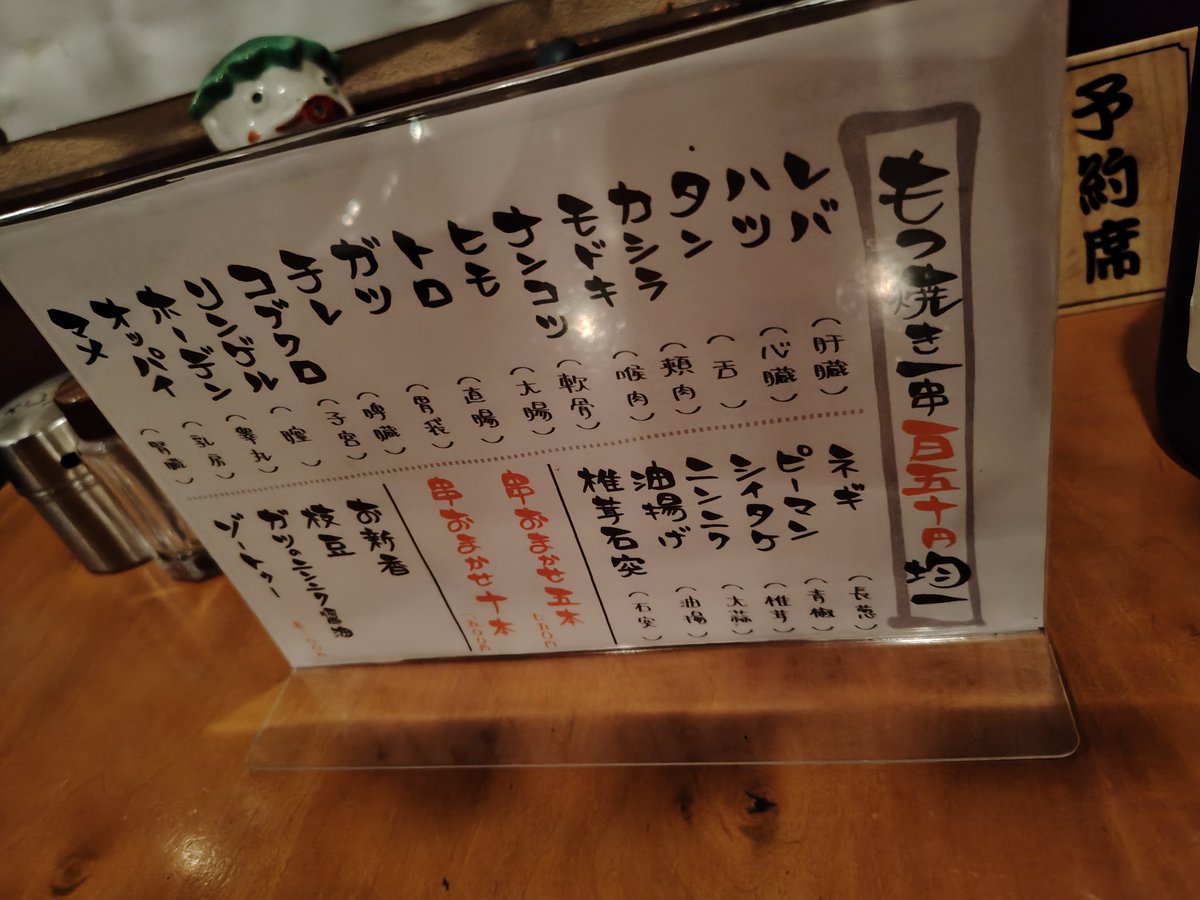 予約席
もつ焼き一串 百五十円 均一
レバ (肝臓)
ハツ (心臓)
タン (舌)
カシラ (頬肉)
モドキ (喉肉)
ナンコツ (軟骨)
ヒモ (大腸)
トロ (直腸)
ガツ (胃袋)
チレ (脾臓)
コブクロ (子宮)
リンゲル (膣)
ホーデン (睾丸)
オッパイ (乳房)
マメ (腎臓)
ネギ (長葱)
ピーマン (青椒)
シイタケ (椎茸)
ニンニク (大蒜)
油揚げ (油揚)
椎茸石突 (石突)
串おまかせ五本
串おまかせ十本
お新香
枝豆
ガツのニンニク醤油
ゾートゥー